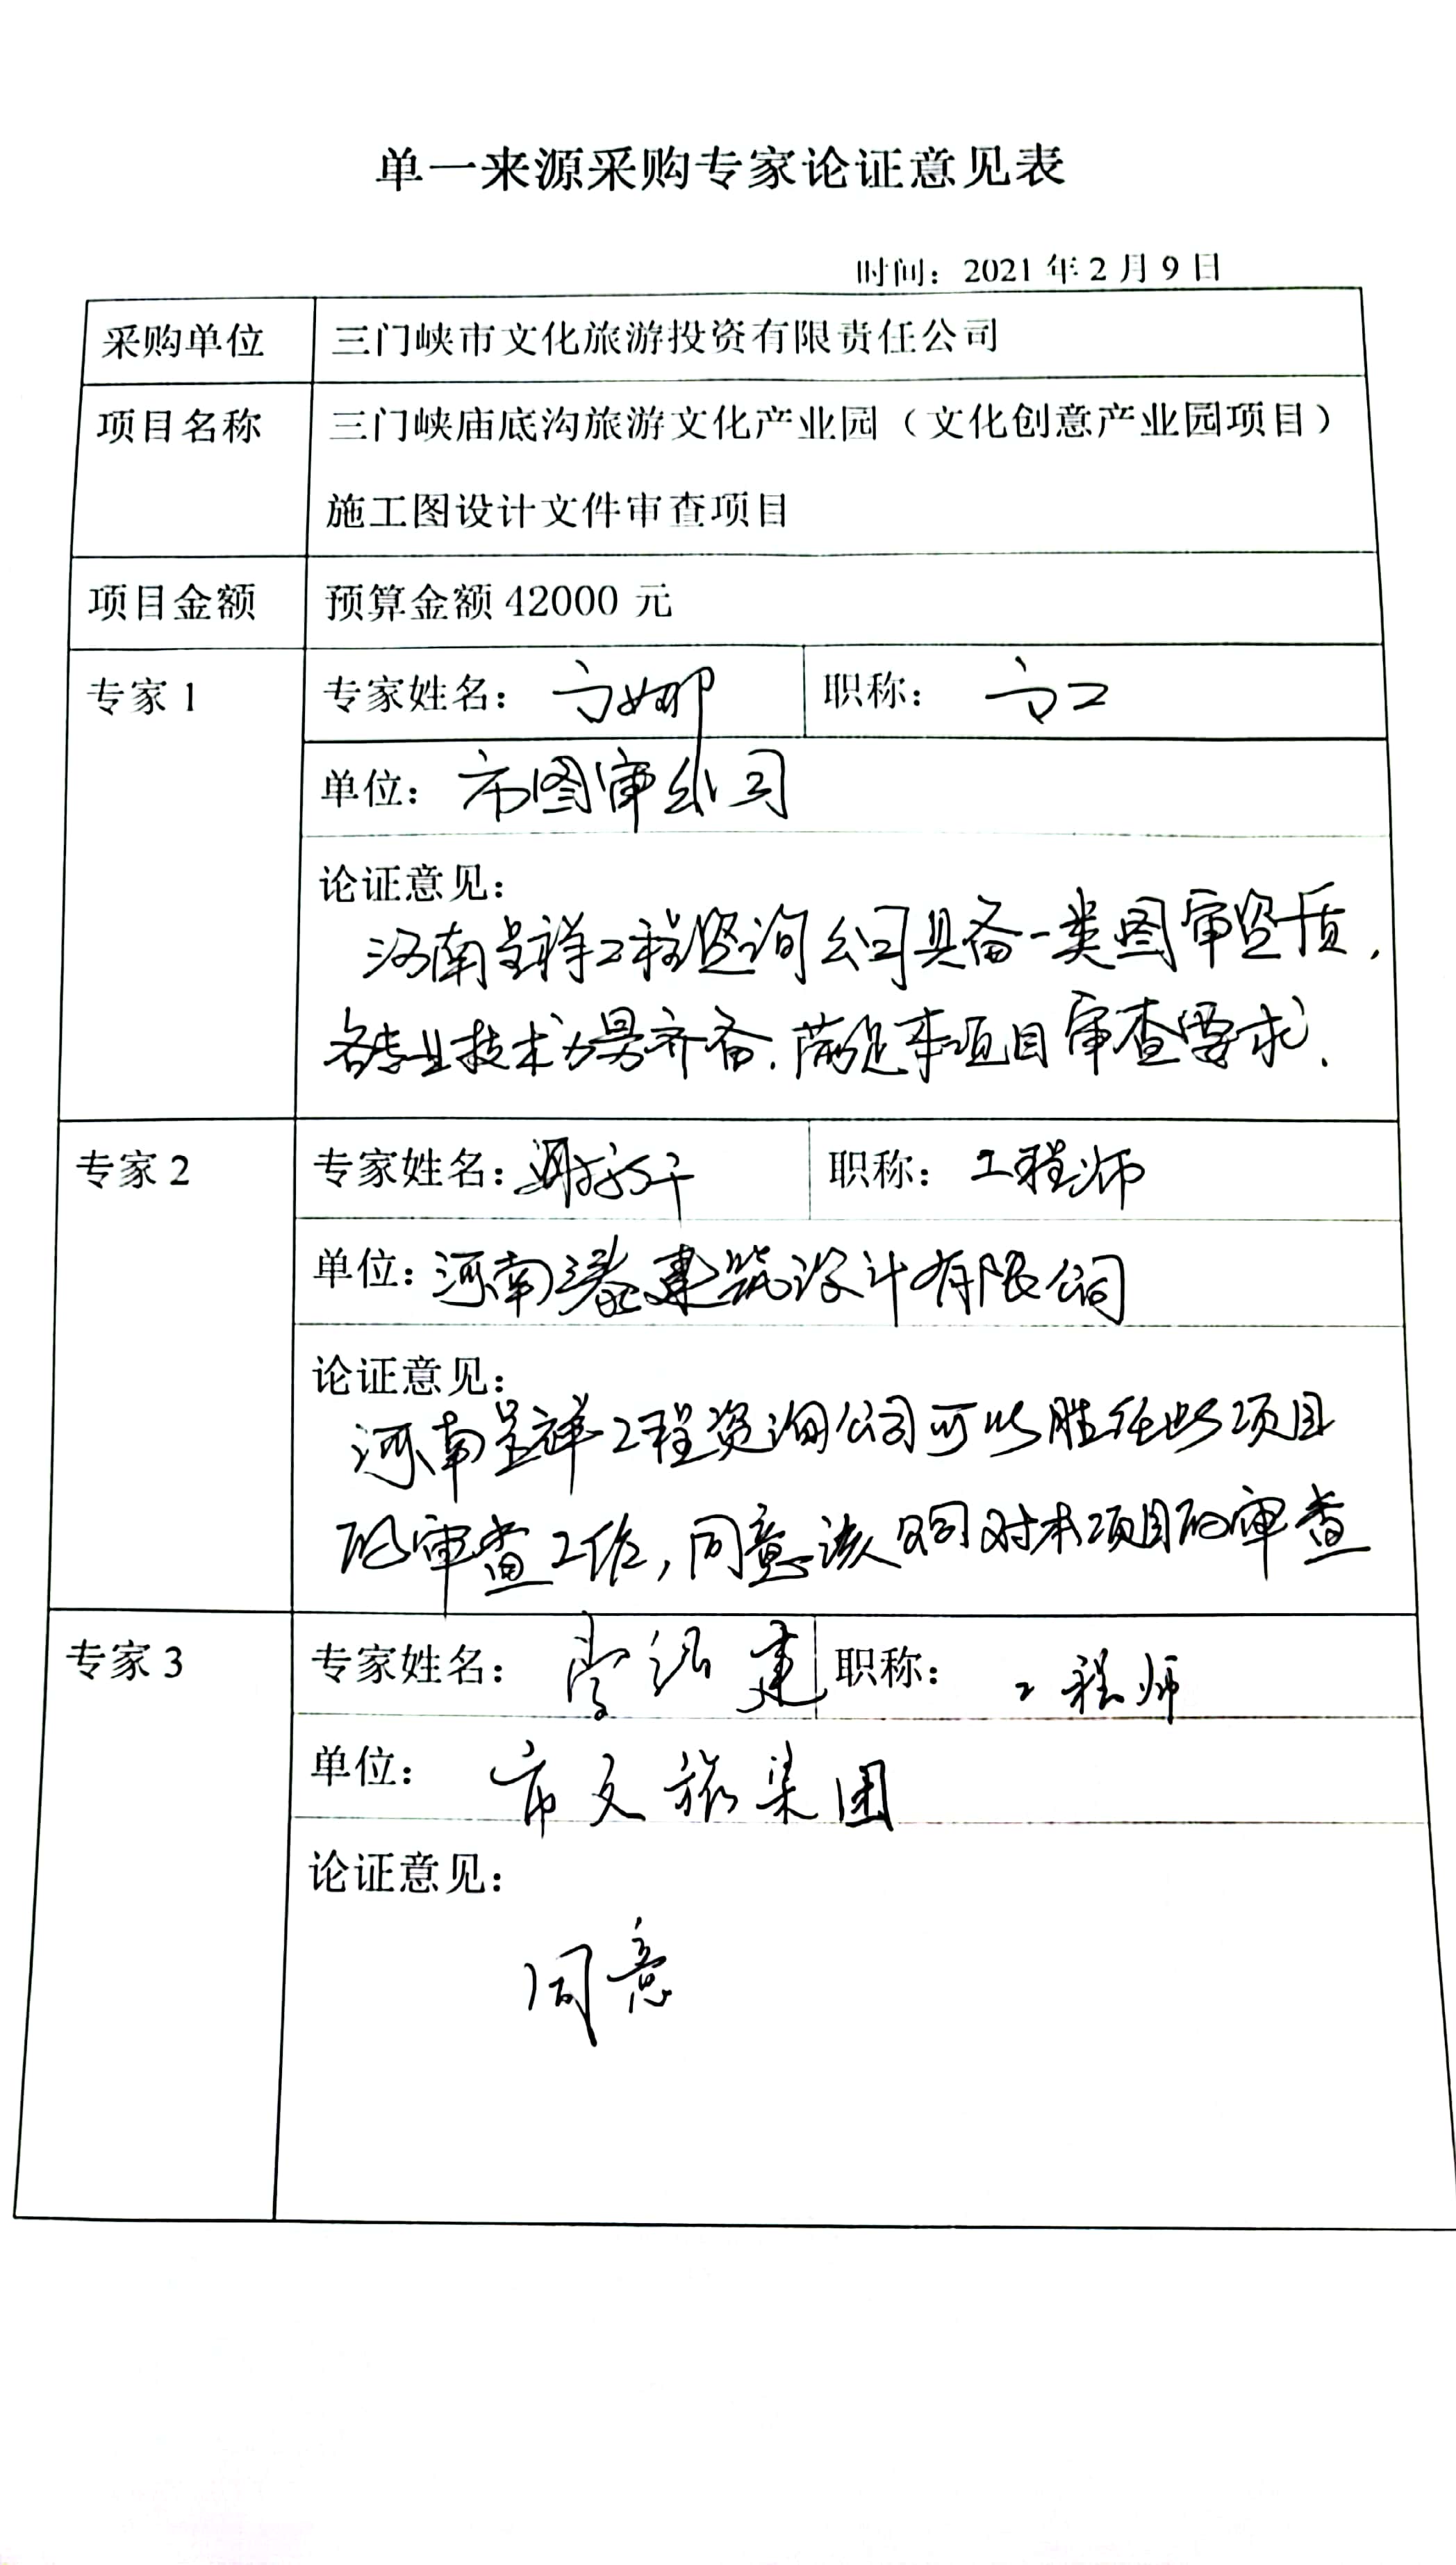 单一来源采购专家论证意见表
时间：2021年2月9日
采购单位 三门峡市文化旅游投资有限责任公司
项目名称 三门峡庙底沟旅游文化产业园（文化创意产业园项目）
施工图设计文件审查项目
项目金额 预算金额42000 元
专家1 专家姓名：方娜 职称：高工
单位：市图审公司
论证意见：
河南呈祥工程咨询公司具备一类图审资质，
各专业技术力量齐备，满足本项目审查要求．
专家2 专家姓名： 职称：工程师
单位：河南 建筑设计有限公司
论证意见：
河南呈祥工程资询公司可以胜任此项目
的审查工作，同意该公司对本项目的审查
专家3 专家姓名： 建 职称：工程师
单位：市文旅集团
论证意见：
同意